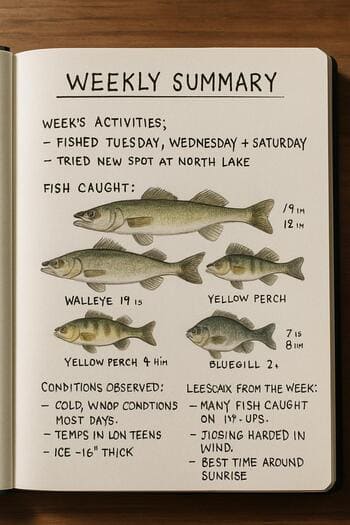 WEEKLY SUMMARY
WEEK'S ACTIVITIES;
– FISHED TUESDAY, WEDNESDAY + SATURDAY
– TRIED NEW SPOT AT NORTH LAKE
FISH CAUGHT:
19 IM
12 IM
WALLEYE 19 IS
YELLOW PERCH
YELLOW PERCH 4 HIM
7 IS
8 IIM
BLUEGILL
CONDITIONS OBSERVED:
– COLD, WNOP CONDTIONS
MOST DAYS.
– TEMPS IN LON TEENS
– ICE -16" THICK
LEESCAIX FROM THE WEEK:
– MANY FISH CAUGHT
ON UPS.
– JIOSING HARDED IN
WIND.
– BEST TIME AROUND
SUNRISE